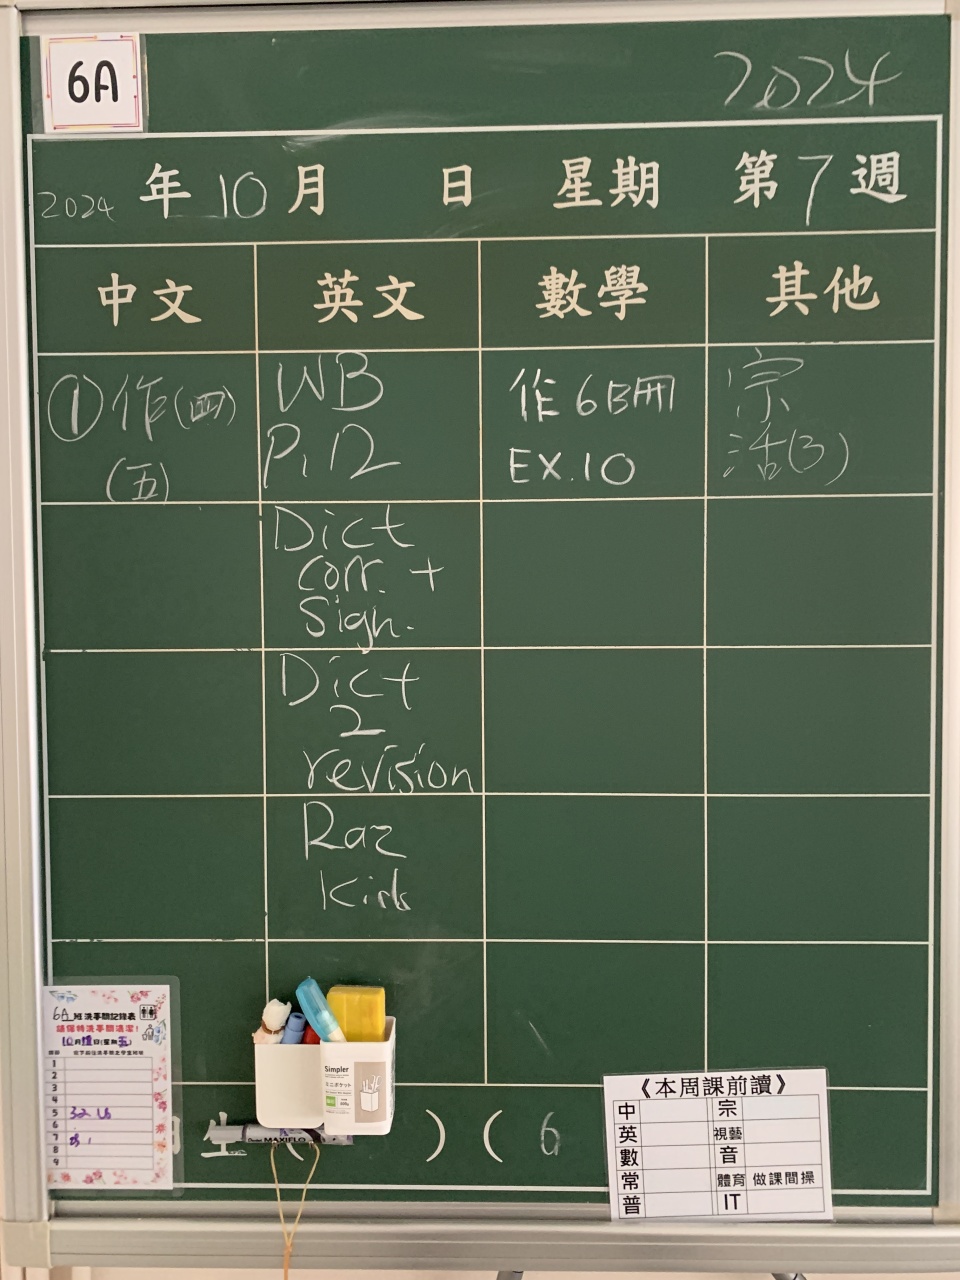 6A
2024
2024 年 10 月 日 星期 第 7 週
中文 英文 數學 其他
①作(四)
(五)
WB
P.12
Dict
corr. +
Sign.
Dict
2
revision
Raz
Kids
作6B冊
EX.10
宗
活(3)
6A班洗手間記錄表
請保持洗手間清潔!
1
2
3
4
5
6
7
8
9
Simpler
ミニポケット
MAXIFLO
生 ( ) ( 6
《本周課前讀》
中 宗
英 視藝
數 音
常 體育 做課間操
普 IT